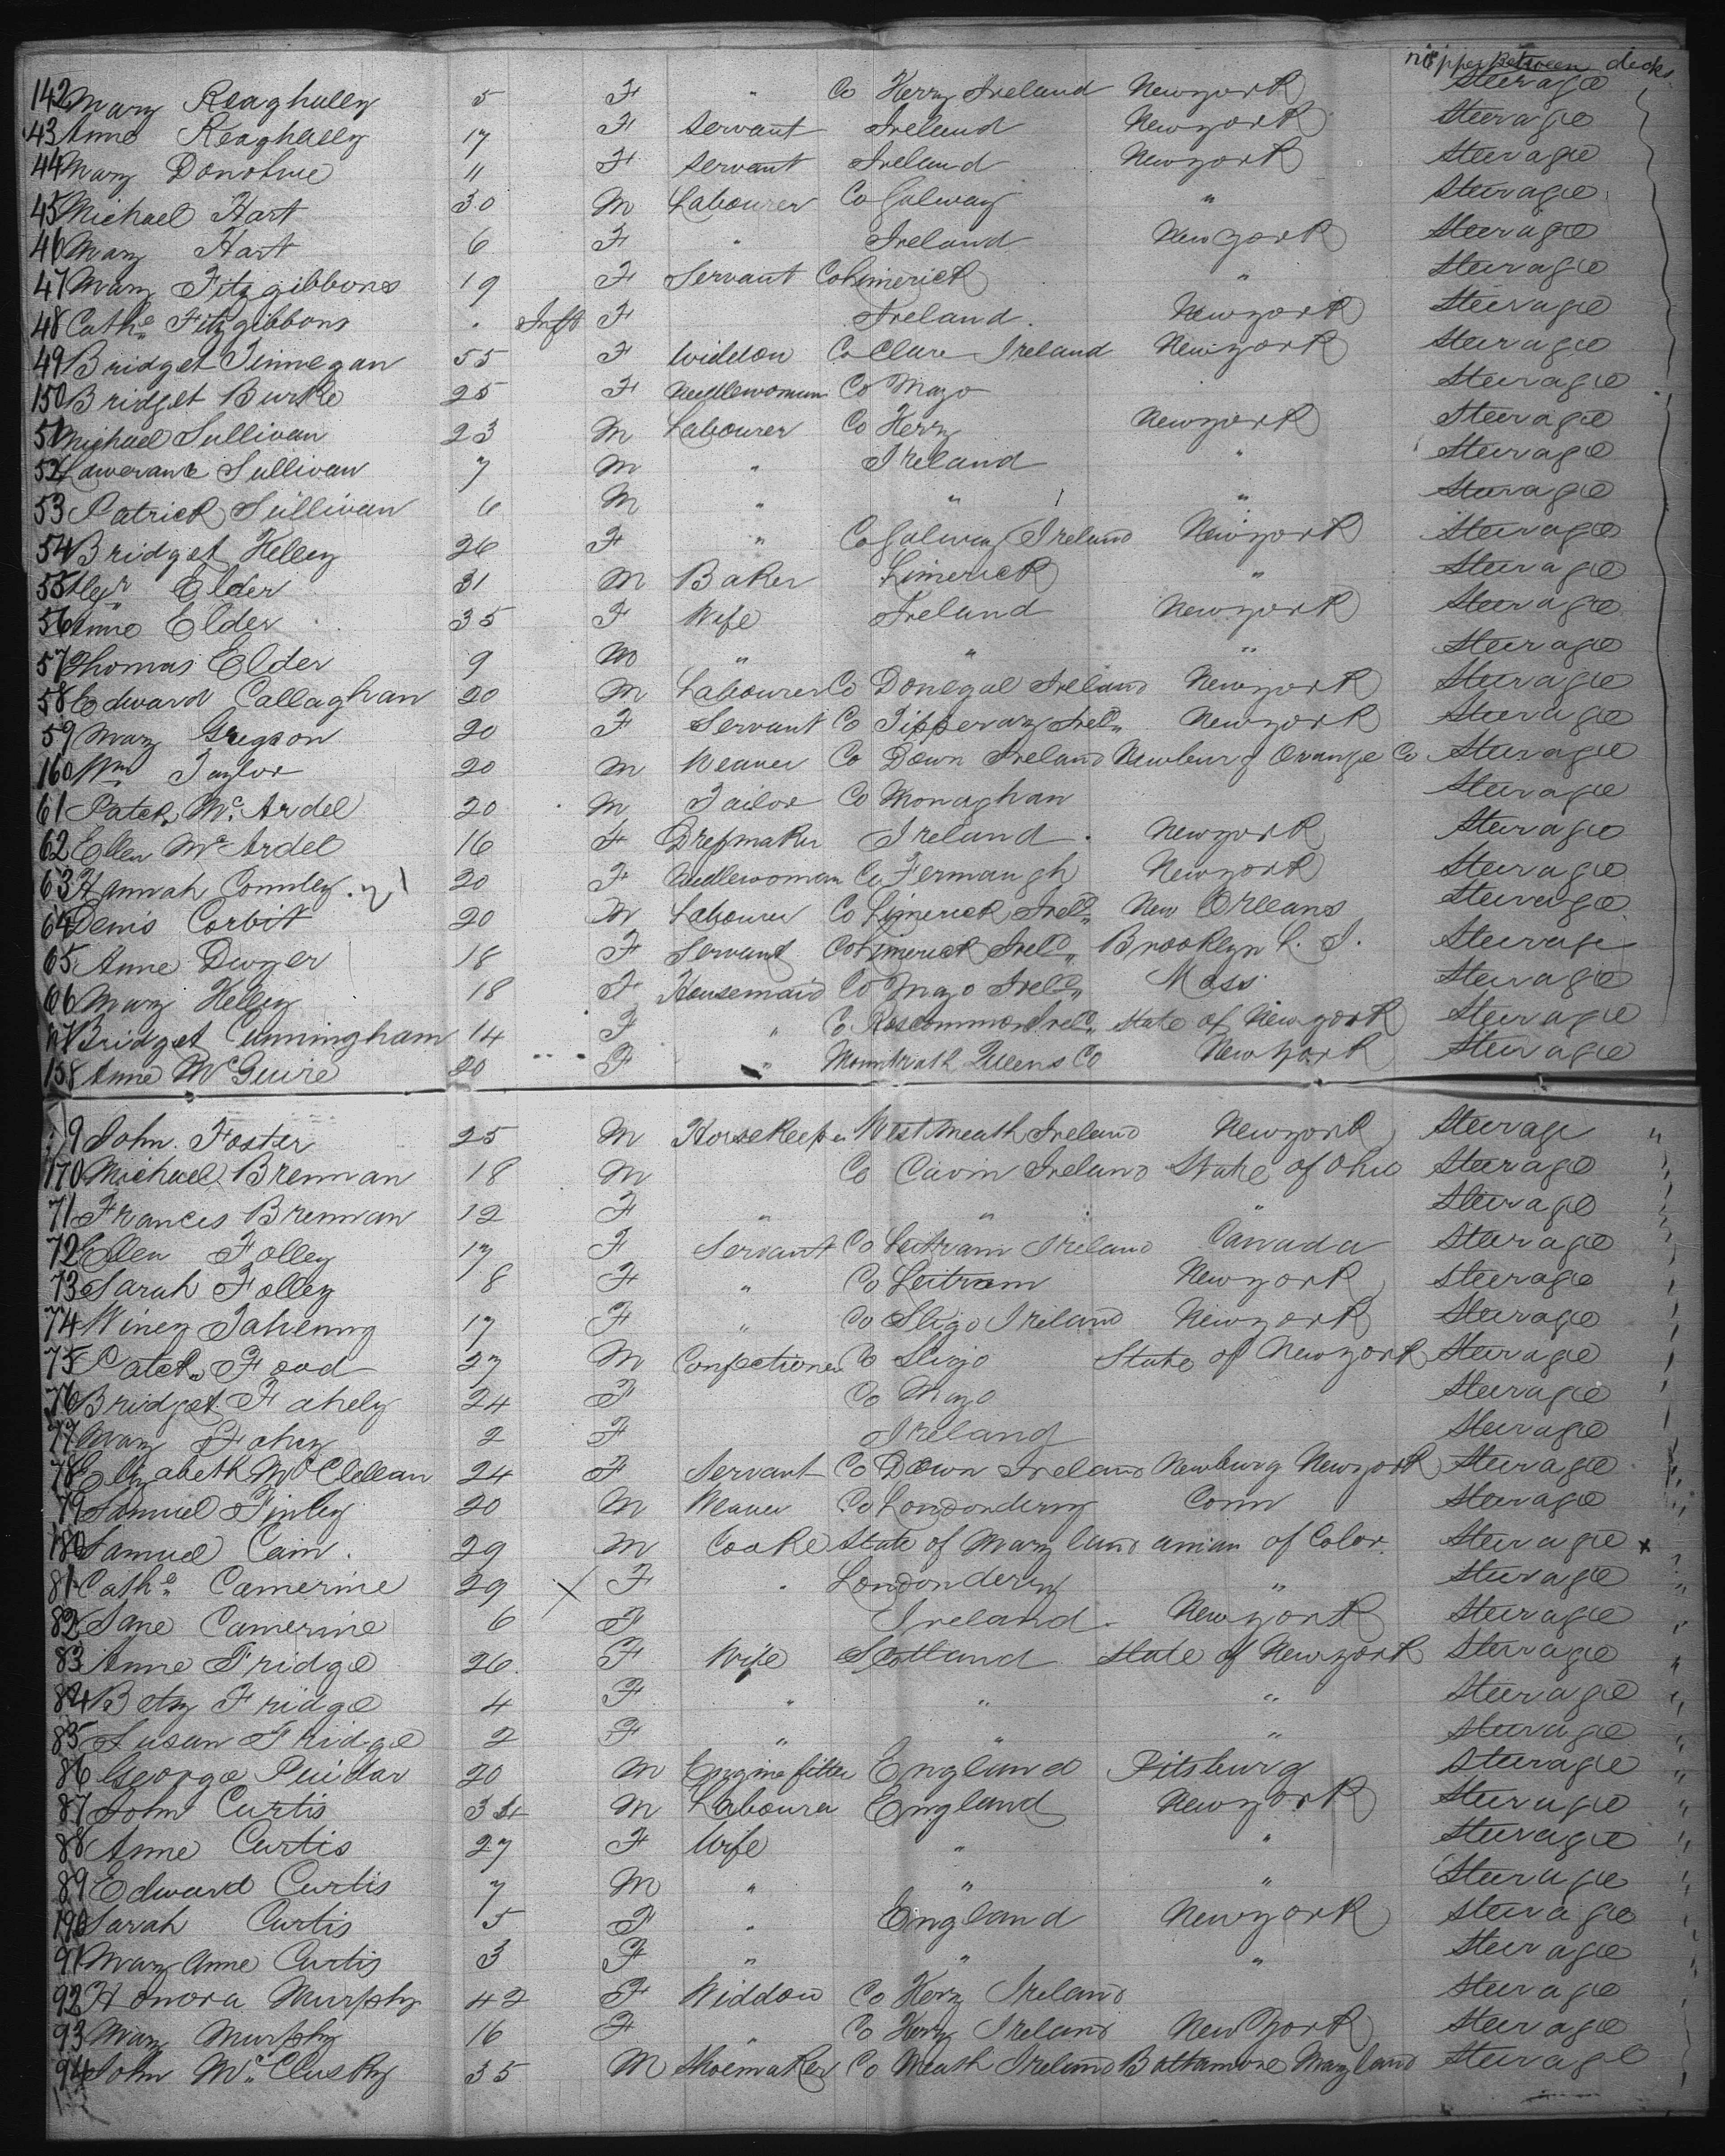 upper Between decks
142 Mary Reaghally 5 F " Co Kerry Ireland Newyork Steerage
43 Anne Reaghally 17 F Servant Ireland Newyork Steerage
44 Mary Donohue 11 F Servant Ireland Newyork Steerage
45 Michael Hart 30 M Labourer Co Galway " Steerage
46 Mary Hart 6 F " Ireland Newyork Steerage
47 Mary Fitzgibbons 19 F Servant Co Limerick " Steerage
48 Cathe Fitzgibbons Inft F Ireland Newyork Steerage
49 Bridget Finnegan 55 F Widdow Co Clare Ireland Newyork Steerage
150 Bridget Burke 25 F Needlewoman Co Mayo Steerage
51 Michael Sullivan 23 M Labourer Co Kerry Newyork Steerage
52 Lawerance Sullivan 7 M " Ireland " Steerage
53 Patrick Sullivan 6 M " " " Steerage
54 Bridget Kelley 26 F " Co Galway Ireland Newyork Steerage
55 Elder 31 M Baker Limerick " Steerage
56 Anne Elder 35 F Wife Ireland Newyork Steerage
57 Thomas Elder 9 M " " " Steerage
58 Edward Callaghan 20 M Labourer Co Donegal Ireland Newyork Steerage
59 Mary Gregson 20 F Servant Co Tipperary Ireld Newyork Steerage
160 Wm Taylor 20 M Weaver Co Down Ireland Newburg Orange Co Steerage
61 Patck Mc Ardel 20 M Tailor Co Monaghan Steerage
62 Ellen Mc Ardel 16 F Dressmaker Ireland Newyork Steerage
63 Hannah Connley 20 F Needlewoman Co Fermaugh Newyork Steerage
64 Denis Corbit 20 M Labourer Co Limerick Ireld New Orleans Steerage
65 Anne Dwyer 18 F Servant Co Limerick Ireld Brooklyn L. I. Steerage
66 Mary Kelley 18 F Housemaid Co Mayo Ireld Mass Steerage
67 Bridget Cunningham 14 F " Co Roscommon Ireld State of Newyork Steerage
158 Anne McGuire 20 F " Mountrath Queens Co Newyork Steerage
9 John Foster 25 M Horsekeeper Westmeath Ireland Newyork Steerage "
170 Michael Brennan 18 M Co Cavin Ireland State of Ohio Steerage "
71 Francis Brennan 12 F " " " Steerage "
72 Ellen Folley 17 F Servant Co Leitram Ireland Canada Steerage
73 Sarah Folley 8 F " Co Leitram Newyork Steerage
74 Winey Tahenny 17 F " Co Sligo Ireland Newyork Steerage
75 Patck Food 27 M Confectioner Co Sligo State of Newyork Steerage
76 Bridget Fahely 24 F Co Mayo Steerage
77 Mary Fahey 2 F Ireland Steerage
78 Elizabeth McClellan 24 F Servant Co Down Ireland Newburg Newyork Steerage
79 Samuel Finley 20 M Weaver Co Londonderry Conn Steerage
180 Samuel Cain 29 M Cooke State of Maryland aman of Color Steerage x
81 Cathe Camerine 29 x F Londonderry " Steerage "
82 Jane Camerine 6 F Ireland Newyork Steerage "
83 Anne Fridge 26 F Wife Scotland State of Newyork Steerage "
84 Betsy Fridge 4 F " " " Steerage "
85 Susan Fridge 2 F " " " Steerage "
86 George 20 M Engine fitter England Pitsburg Steerage "
87 John Curtis 34 M Labourer England Newyork Steerage "
88 Anne Curtis 27 F Wife " " Steerage "
89 Edward Curtis 7 M " " " Steerage "
190 Sarah Curtis 5 F " England Newyork Steerage "
91 Mary Anne Curtis 3 F " " " Steerage
92 Honora Murphy 42 F Widdow Co Kerry Ireland Steerage
93 Mary Murphy 16 F " Co Kerry Ireland New York Steerage
94 John Mc Clusky 35 M Shoemaker Co Meath Ireland Baltamore Maryland Steerage